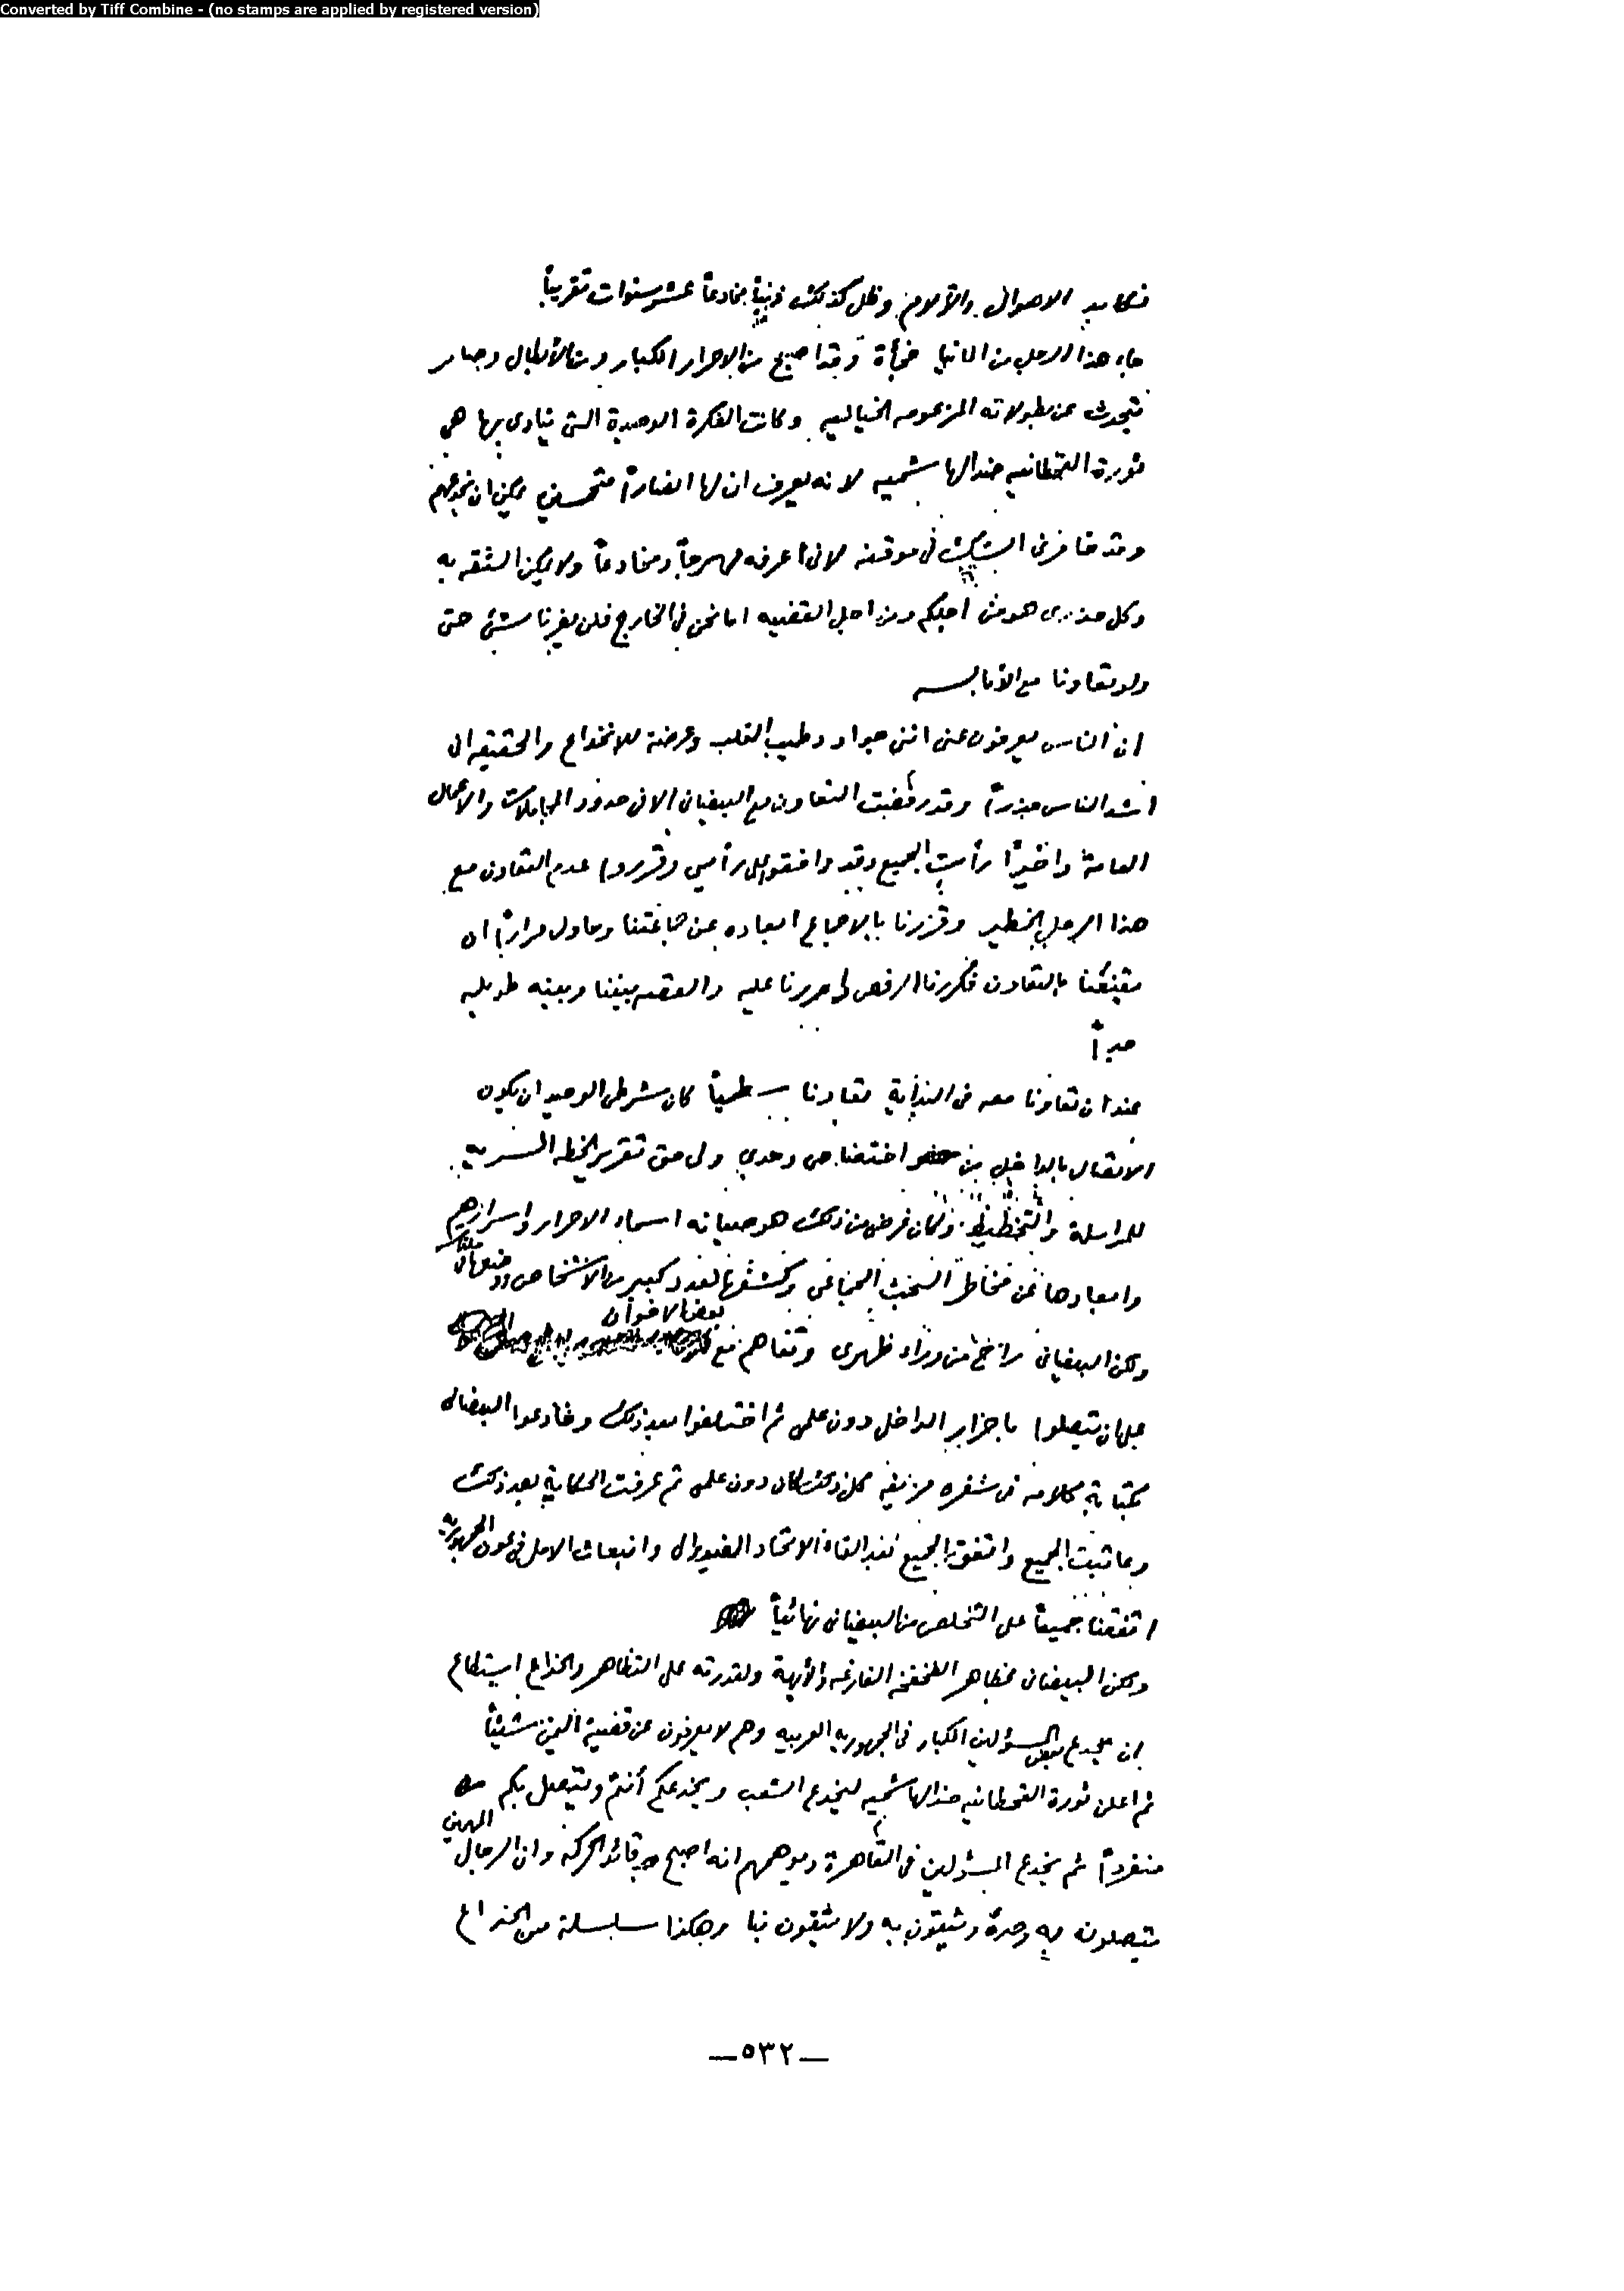 Converted by Tiff Combine - (no stamps are applied by registered version)
نكابد الاهوال والآلام وظل كذلك ذنباً مخادعاً عشر سنوات تقريباً
جاء هذا الرجل من المانيا فجأة وقد اصبح من الاحرار الكبار ومن الأبطال وصار
يتحدث عن بطولاته المزعومه الخياليه وكانت الفكرة الوحيدة التى ينادى بها هي
ثورة القحطانيه ضد الهاشميه لانه يعرف ان لها انصاراً متحمسين يمكن ان يخدعهم
وقد خامرنى الشك فى موقفه لانى اعرفه مهرجاً ومخادعاً ولا يمكن الثقه به
وكل حذرى هو من اجلكم ومن اجل القضيه اما نحن فى الخارج فلن يضرنا شئ حتى
ولو تعاونا مع الأبالسه
ان الناس يعرفون عنى اننى جواد وطيب القلب وعرضة للانخداع والحقيقه انى
اشد الناس حذراً وقد رفضت التعاون مع البيضانى الا فى حدود المجاملات والأعمال
العامة واخيراً رأيت الجميع وقد وافقوا على رأيي وقرروا عدم التعاون مع
هذا الرجل الخطير وقررنا بالاجماع ابعاده عن جماعتنا وحاول مراراً ان
يقنعنا بالتعاون فكررنا الرفض واصررنا عليه والقصه بيننا وبينه طويله
جداً
عندما تعاونا معه فى البداية تعاونا سطحياً كان شرطى الوحيد ان يكون
الاتصال بالداخل من اختصاصى وحدي ولى حق تقرير الخطه السريه
للمراسلة والتخطيط وكان غرضى من ذلك هو صيانه اسماء الاحرار واسرارهم
وابعادها عن مخاطر البحث الجماعى وكشفها لعدد كبير من الاشخاص
ولكن البيضانى من وراء ظهرى وتفاهم مع بعض الاخوان
على ان يتصلوا باحرار الداخل دون علمى ثم اختلفوا بعد ذلك وخادعوا البيضانى
بكتابة كلامه فى شفره مزيفه كل ذلك كان دون علمى ثم عرفت الحكاية بعد ذلك
وعاتبت الجميع واتفق الجميع بعد الغاء الاتحاد الفيدرالى وانبعاث الامل فى عون الجمهورية
اتفقنا جميعاً على التخلص من البيضانى نهائياً
ولكن البيضانى بمظاهر الفخفخه الفارغه والأبهة ولقدرته على التظاهر والخداع استطاع
ان يخدع بعض المسؤلين الكبار فى الجمهوريه العربيه وهم لا يعرفون عن قضية اليمن شيئاً
ثم اعلن ثورة القحطانيه ضد الهاشميه ليخدع الشعب ويخدعكم أنتم ويتصل بكم
منفرداً ثم يخدع المسؤلين فى القاهرة ويوهمهم انه اصبح قائد الحركه وان الرجال
يتصلون به وحده ويثقون به ولا يثقون بنا وهكذا سلسلة من الخداع
—٥٣٢—